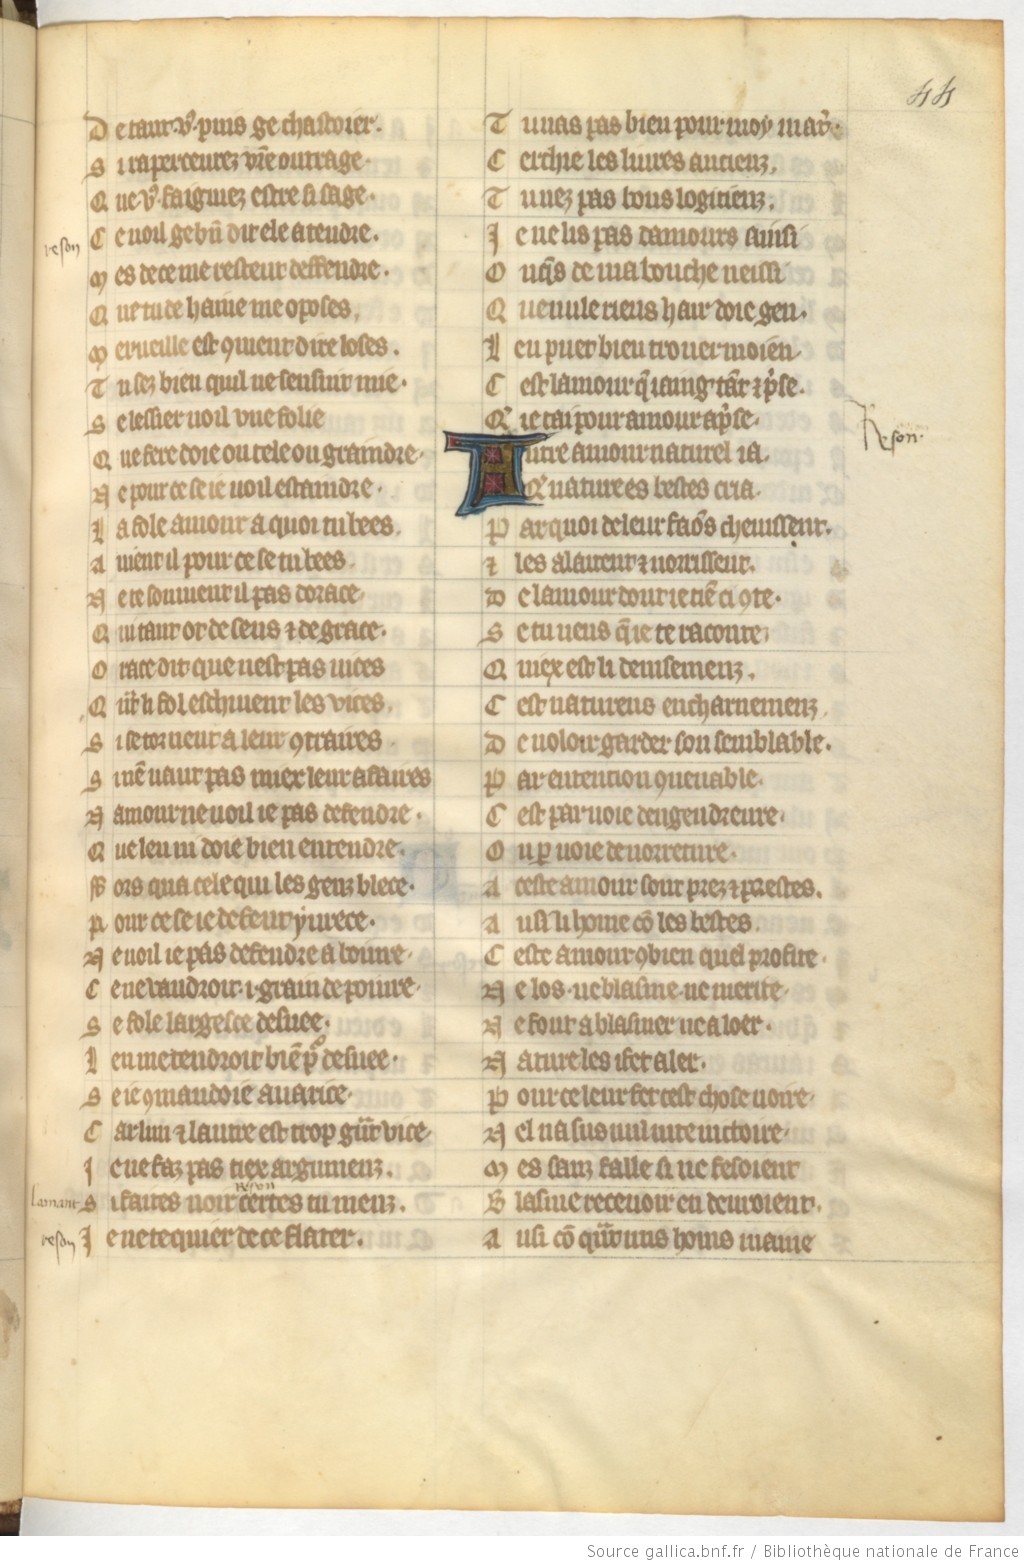 44
D e tant v9 puis ge chastoier.
S i raperceurez vr̃e outrage.
Q ue v9 faigniez estre si sage.
reson
C e voil ge bñ dit ele atendre.
M es de ce me resteut deffendre.
Q ue tu de haine me oposes.
M erueille est 9ment dire loses.
T u sez bien quil ne sensiut mie.
S e lessier uoil vne folie
Q ue fere doie ou tele ou graindre.
N e pour ce se ie uoil estaindre.
L a fole amour a quoi tu bees.
A
N e te souuient il pas dorace.
Q ui tant ot de sens ⁊ de grace.
O race dit que nest pas nices
Q ñt li fol eschiuent les vices.
S i se tornent a leur 9traires
S i nẽ uaut pas miex leur afaires
N amour ne uoil ie pas defendre.
Q ue len ni doie bien entendre.
F ors qua cele qui les genz blece.
P our ce se ie defent yurece.
N e uoil ie pas defendre a boiure.
C e ne vaudroit .i. grain de poiure.
S e fole largesce desuee.
L en me tendroit biẽ pͦ desuee.
S e ie 9mandoie auarice.
C ar lun ⁊ lautre est trop gñt vice.
I e ne faz pas tiex argumenz.
lamant
S i faites uoir
reson
certes tu menz.
reson
I e ne te quier de ce flater.
T u nas pas bien pour moy mat̾.
C erchie les liures anciens.
T u nez pas bons logiciens.
I e ne lis pas damours ainsi
O nq̃s de ma bouche neissi
Q ue nule riens hair doie gen.
L en puet bien trouer moien
C est lamour q̃ iaing tãt ⁊ p̾se.
Q̃ ie tai pour amour ap̾se.
Reson.
A utre amour naturel ia.
Q̃ nature es bestes cria.
P ar quoi de leur faõs cheuissent.
⁊ les alaitent ⁊ norrissent.
D e lamour dont ie tiẽ ci 9te.
S e tu ueus q̃ ie te raconte
Q uiex est li deuisemenz.
C est natureus enclinemenz.
D e uoloir garder son semblable.
P ar entention 9uenable.
C est par uoie dengendreure.
O u ꝑ uoie de norreture.
A ceste amour sont prez ⁊ prestes.
A usi li home cõ les bestes.
C este amour 9bien quel profite.
N e los. ne blasme. ne merite.
N e font a blasmer ne a loer.
N ature les i fet aler.
P our ce leur fet cest chose uoire.
N el na sus nul uice uictoire.
M es sanz faille si ne fesoient
B lasme receuoir en deuroient.
A usi cõ q̃nt uns homs maine
Source gallica.bnf.fr / Bibliothèque nationale de France